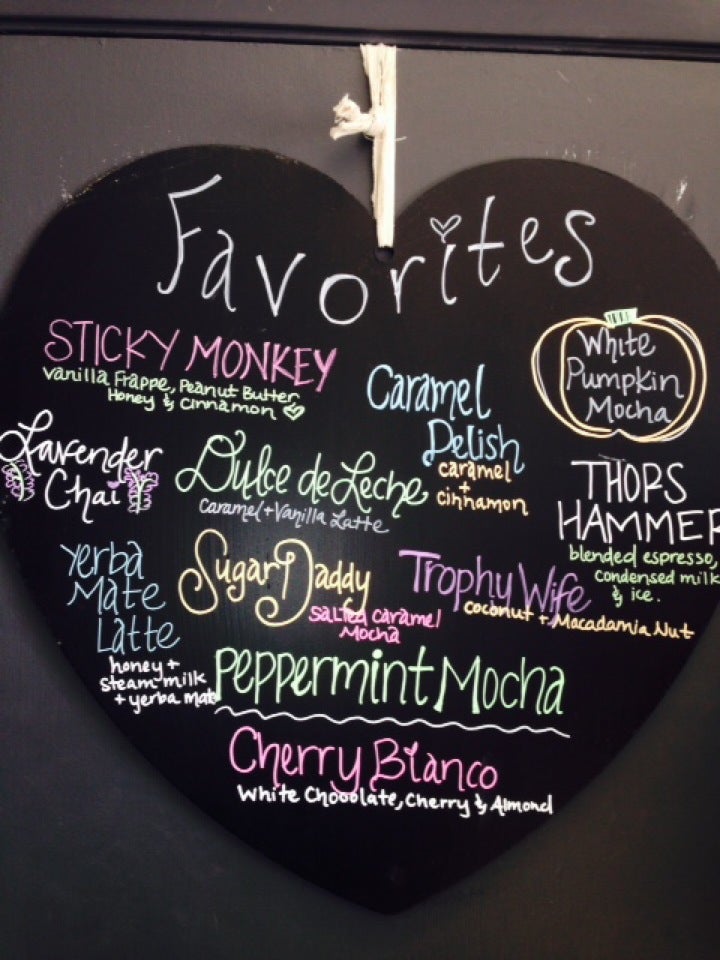 Favorites
STICKY MONKEY
Vanilla Frappe, Peanut Butter
Honey & Cinnamon
White
Pumpkin
Mocha
Caramel
Delish
caramel
+
cinnamon
Lavender
Chai
Dulce de Leche
Caramel + Vanilla Latte
THORS
HAMMER
blended espresso,
condensed milk
& ice.
Yerba
Mate
Latte
honey +
steam milk
+ yerba mate
Sugar Daddy
Salted Caramel
Mocha
Trophy Wife
coconut + Macadamia Nut
Peppermint Mocha
Cherry Bianco
White Chocolate, Cherry & Almond